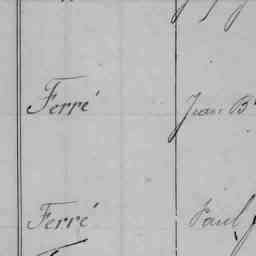 Ferré Jean B
Ferré Paul